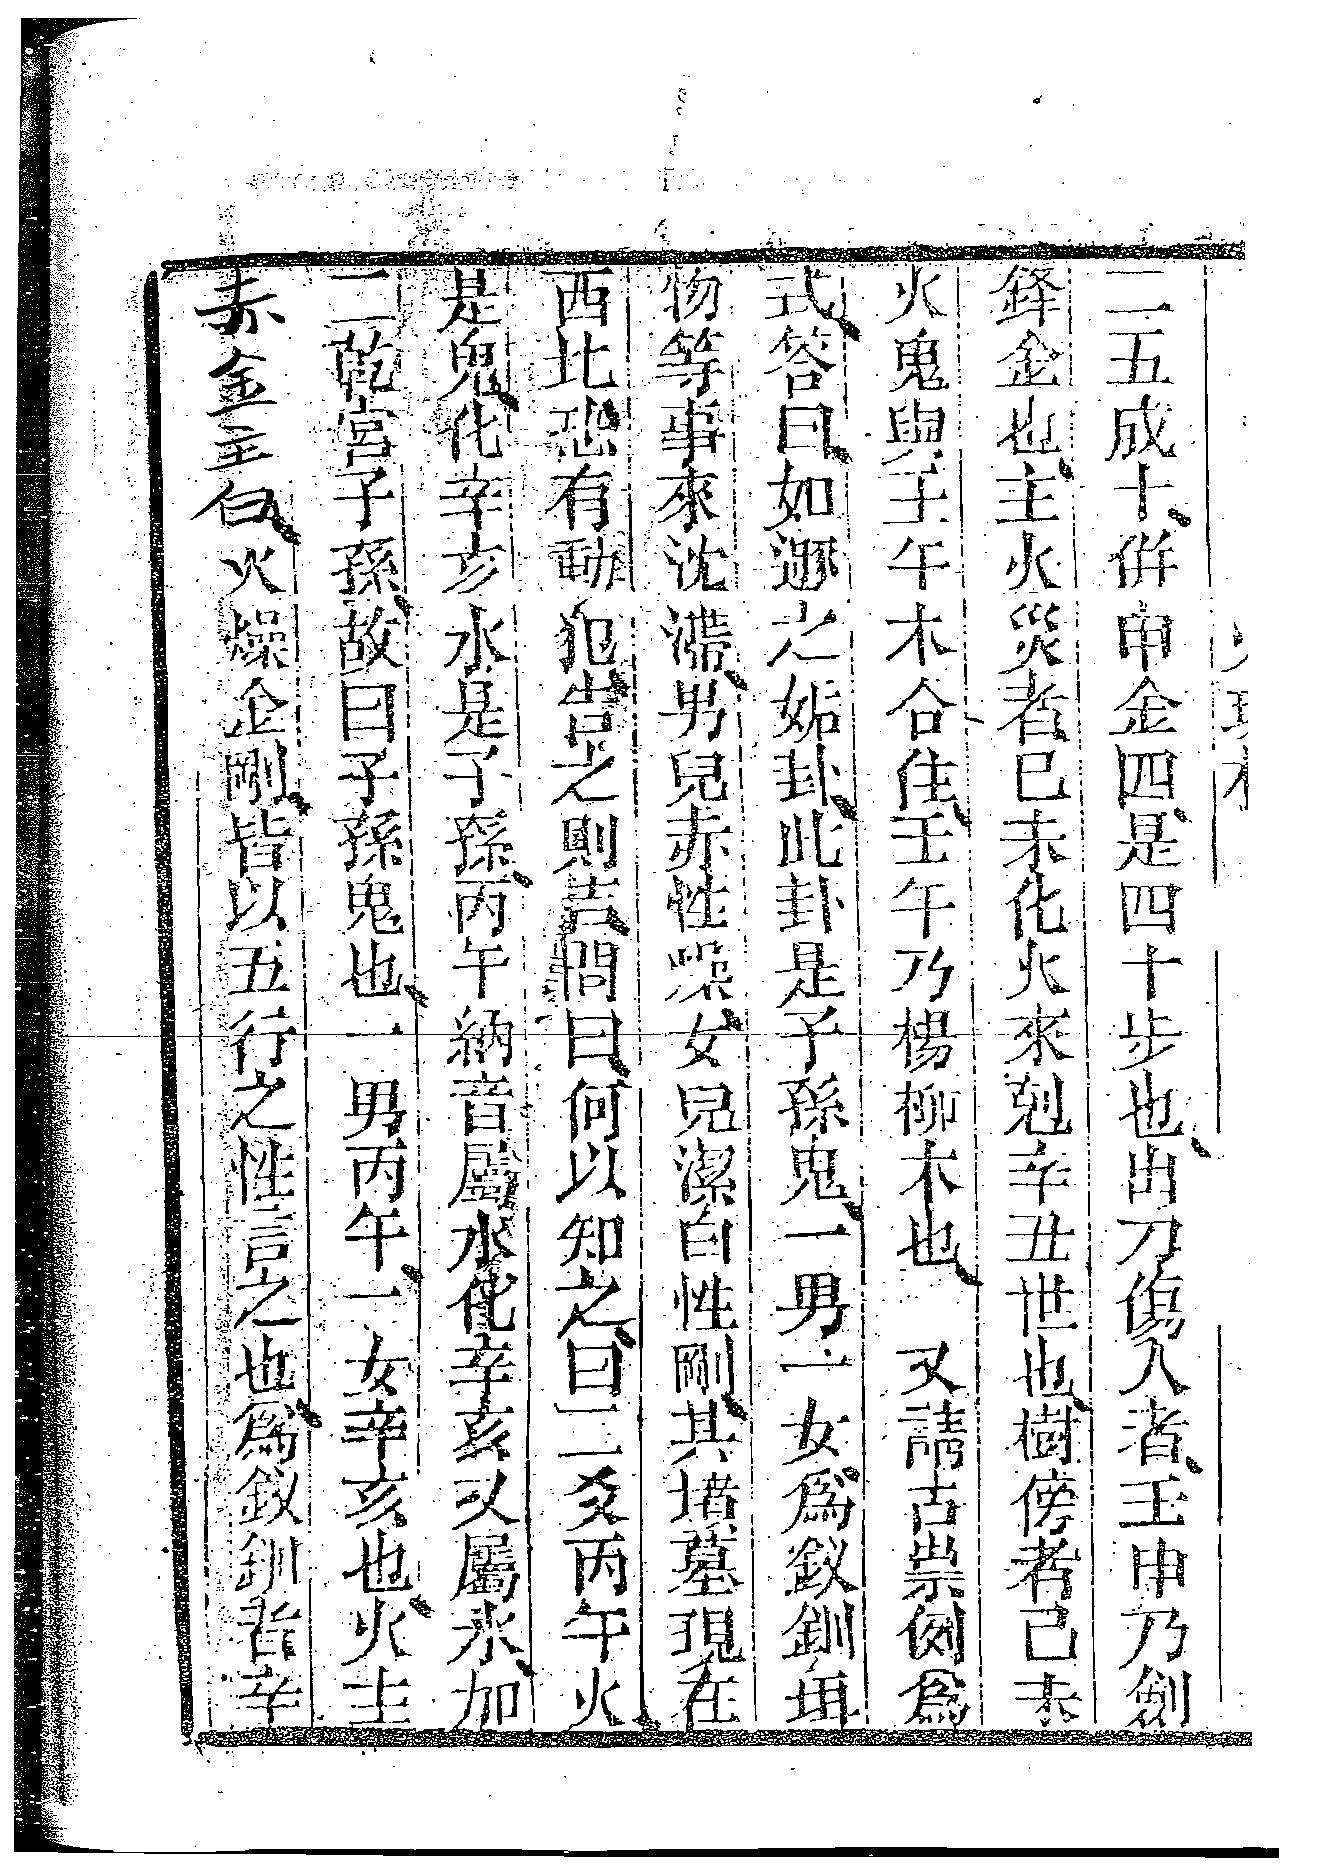 二五成十併申金四是四十步也出刀傷人者壬申乃劍
鋒金也主火災者已未化火來剋辛丑世也樹傍者已未
火鬼與壬午木合住壬午乃楊柳木也　又請占祟例爲
式答曰如遯之姤卦此卦是子孫鬼一男一女爲釵釧
物等事來沈滯男兒赤性燥女兒潔白性剛其墳墓現在
西北恐有動犯告之則吉問曰何以知之曰二爻丙午火
是鬼化辛亥水是子孫丙午納音屬水化辛亥又屬水加
二乾宮子孫故曰子孫鬼也一男丙午一女辛亥也火主
赤金主白火燥金剛皆以五行之性言之也爲釵釧者辛